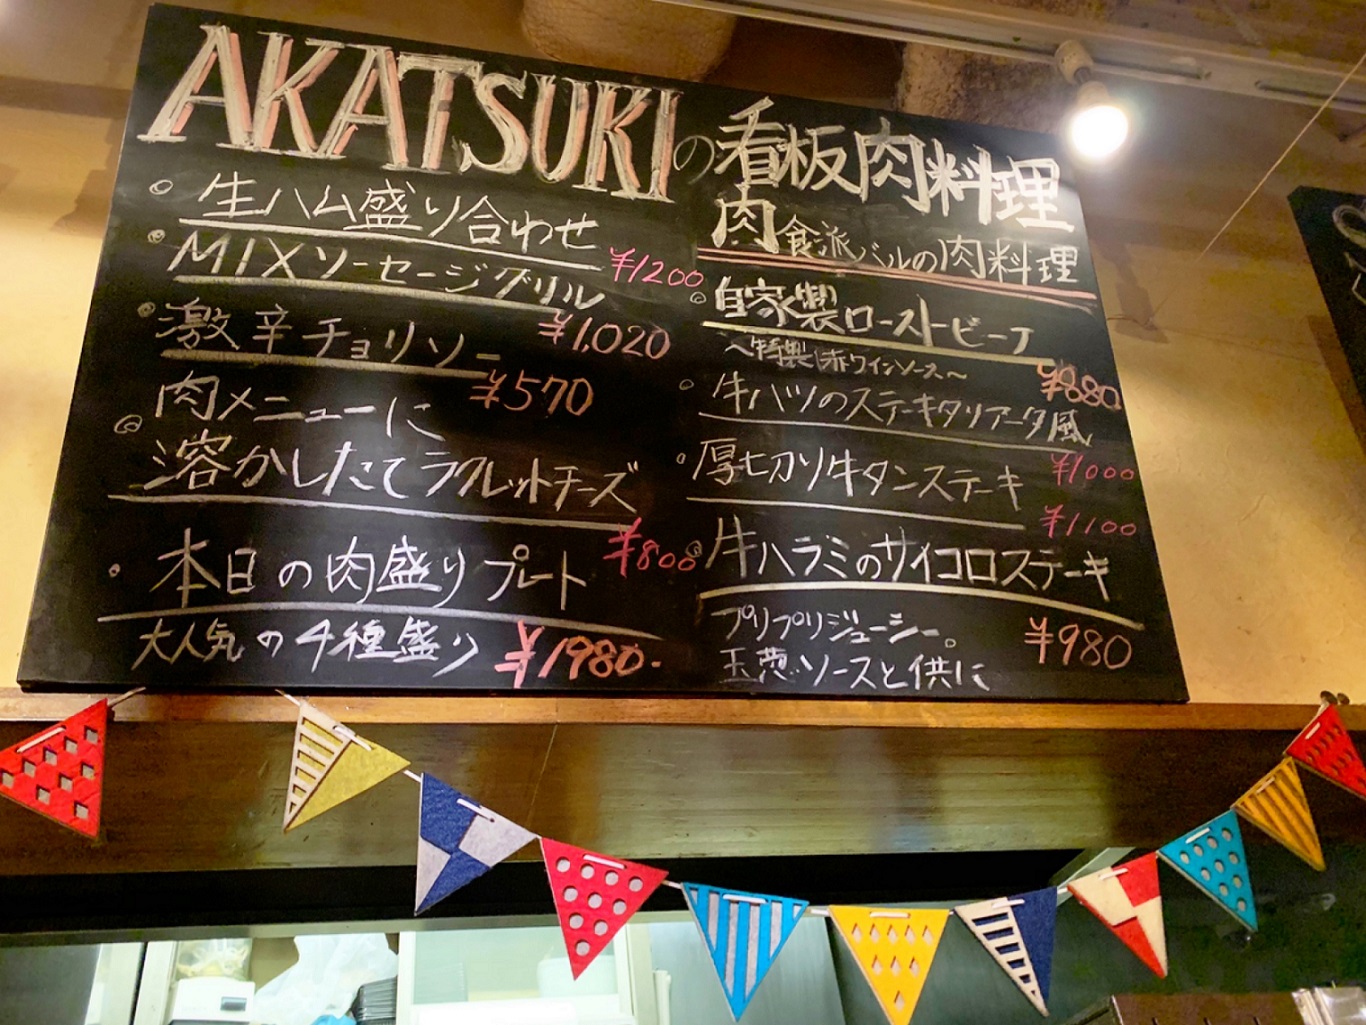 AKATSUKIの看板肉料理
生ハム盛り合わせ
¥1200
MIXソーセージグリル
¥1,020
激辛チョリソー
¥570
肉メニューに
溶かしたてラクレットチーズ
¥800
本日の肉盛りプレート
大人気の4種盛り
¥1980.
肉食派バルの肉料理
自家製ローストビーフ
〜特製赤ワインソース〜
¥880
牛ハツのステーキタリアータ風
¥1000
厚切り牛タンステーキ
¥1100
牛ハラミのサイコロステーキ
プリプリジューシー。
玉葱ソースと供に
¥980